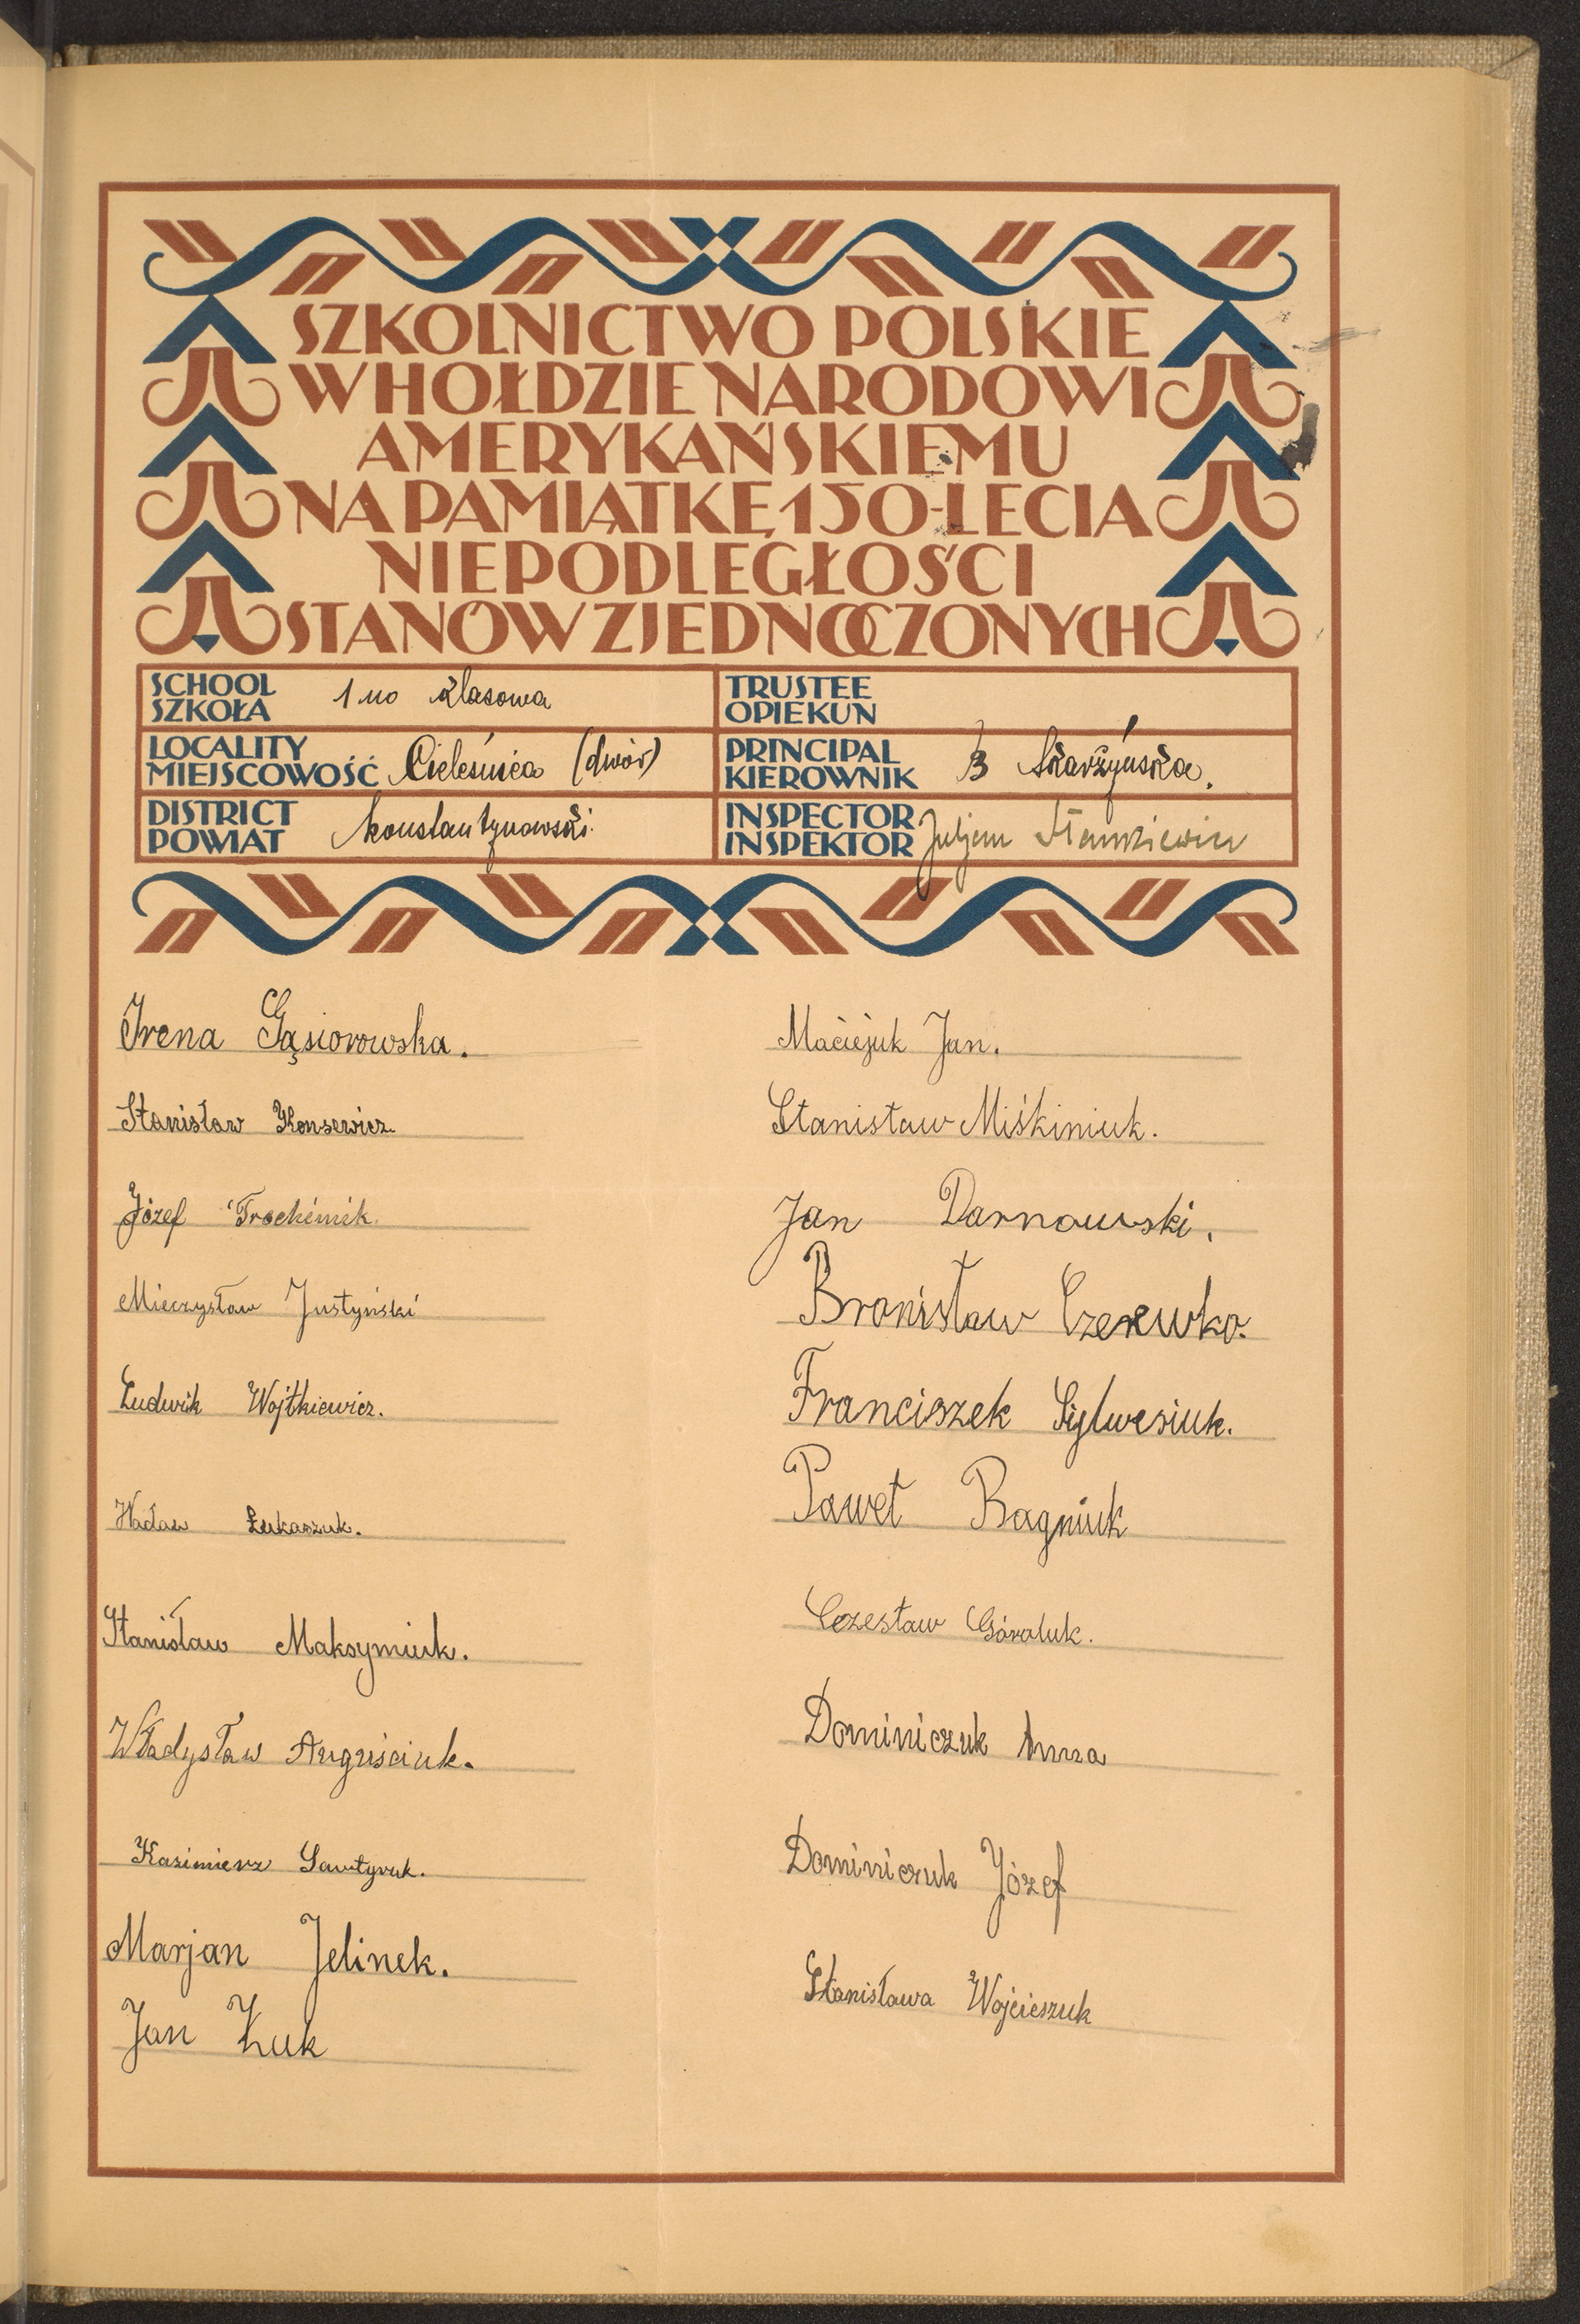 SZKOLNICTWO POLSKIE
W HOŁDZIE NARODOWI
AMERYKAŃSKIEMU
NA PAMIĄTKĘ 150-LECIA
NIEPODLEGŁOŚCI
STANÓW ZJEDNOCZONYCH
SCHOOL
SZKOŁA 1 no klasowa
TRUSTEE
OPIEKUN
LOCALITY
MIEJSCOWOŚĆ Cieleśnica (dwór)
PRINCIPAL
KIEROWNIK B Skarżyńska.
DISTRICT
POWIAT Konstantynowski.
INSPECTOR
INSPEKTOR Juljan Stankiewicz
Irena Gąsiorowska.
Stanisław Konsewicz
Józef Trochimik.
Mieczysław Justyński
Ludwik Wojtkiewicz.
Wacław Łukaszuk.
Stanisław Maksymiuk.
Władysław Auguściuk.
Kazimierz
Marjan Jelinek.
Jan Żuk
Maciejuk Jan.
Stanisław Miśkiniuk.
Jan Darnowski.
Bronisław Czerewko.
Franciszek Sylwesiuk.
Paweł Bagniuk
Czesław Góraluk.
Dominiczuk Anna
Dominiczuk Józef
Stanisława Wojcieszuk